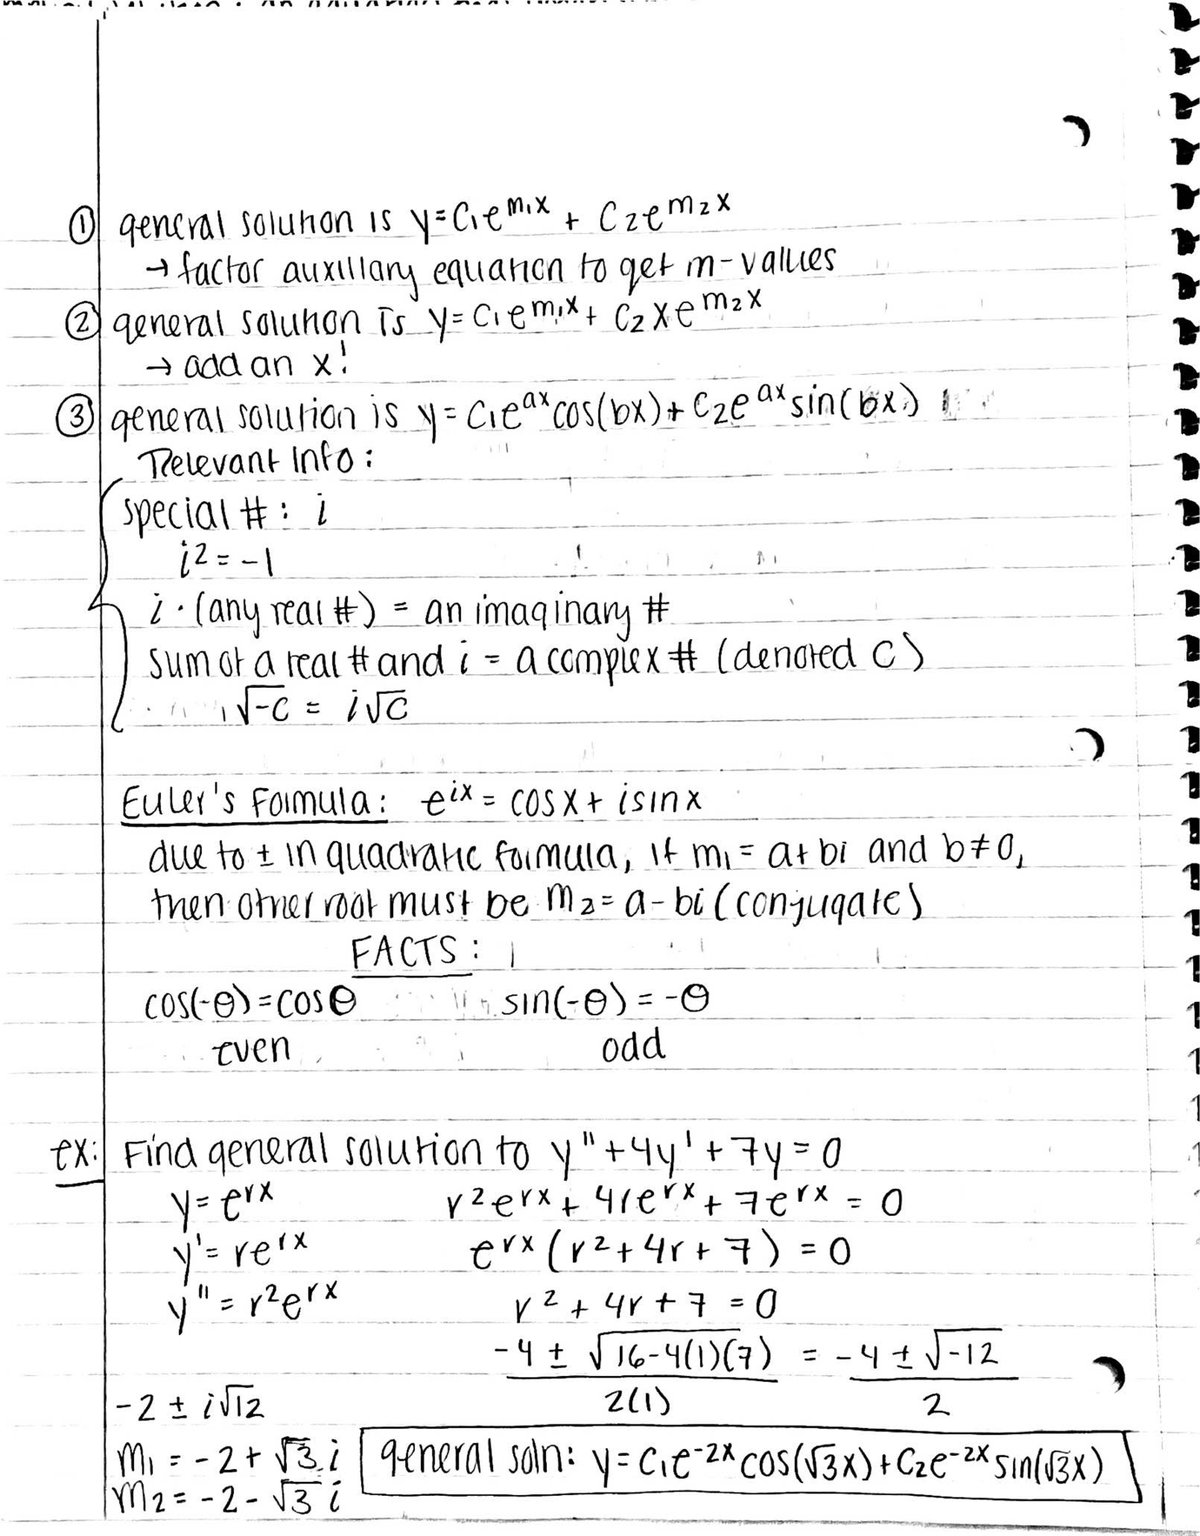 ① general solution is y = C₁e^m₁x + C₂e^m₂x
→ factor auxillary equation to get m-values
② general solution is y = C₁e^m₁x + C₂xe^m₂x
→ add an x!
③ general solution is y = C₁e^ax cos(bx) + C₂e^ax sin(bx)
Relevant Info:
special #: i
i² = -1
i · (any real #) = an imaginary #
sum of a real # and i = a complex # (denoted C)
√-C = i√C
Euler's Formula: e^ix = cosx + isinx
due to ± in quadratic formula, if m₁ = a+bi and b≠0,
then other root must be m₂ = a-bi (conjugate)
FACTS:
cos(-θ) = cosθ sin(-θ) = -θ
even odd
ex: Find general solution to y'' + 4y' + 7y = 0
y = e^rx r²e^rx + 4re^rx + 7e^rx = 0
y' = re^rx e^rx (r² + 4r + 7) = 0
y'' = r²e^rx r² + 4r + 7 = 0
-4 ± √16-4(1)(7) = -4 ± √-12
-2 ± i√12 2(1) 2
m₁ = -2 + √3 i general soln: y = C₁e^-2x cos(√3x) + C₂e^-2x sin(√3x)
m₂ = -2 - √3 i